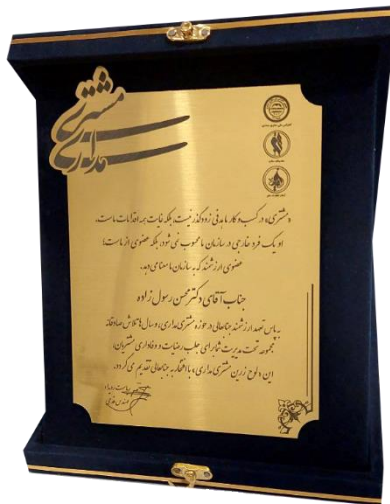 مشتری
مداری
«مشتری» در کسب و کار ما هدفی زودگذر نیست، بلکه غایت همه اقدامات ماست.
او یک فرد خارجی در سازمان ما محسوب نمی شود، بلکه عضوی از ماست؛
عضوی ارزشمند که به سازمان ما معنا می دهد.
جناب آقای دکتر محسن رسول زاده
به پاس تعهد ارزشمند جنابعالی در حوزه مشتری مداری، و سال ها تلاش صادقانه
مجموعه تحت مدیریت شما برای جلب رضایت و وفاداری مشتریان؛
این «لوح زرین مشتری مداری» با افتخار به جنابعالی تقدیم می گردد.